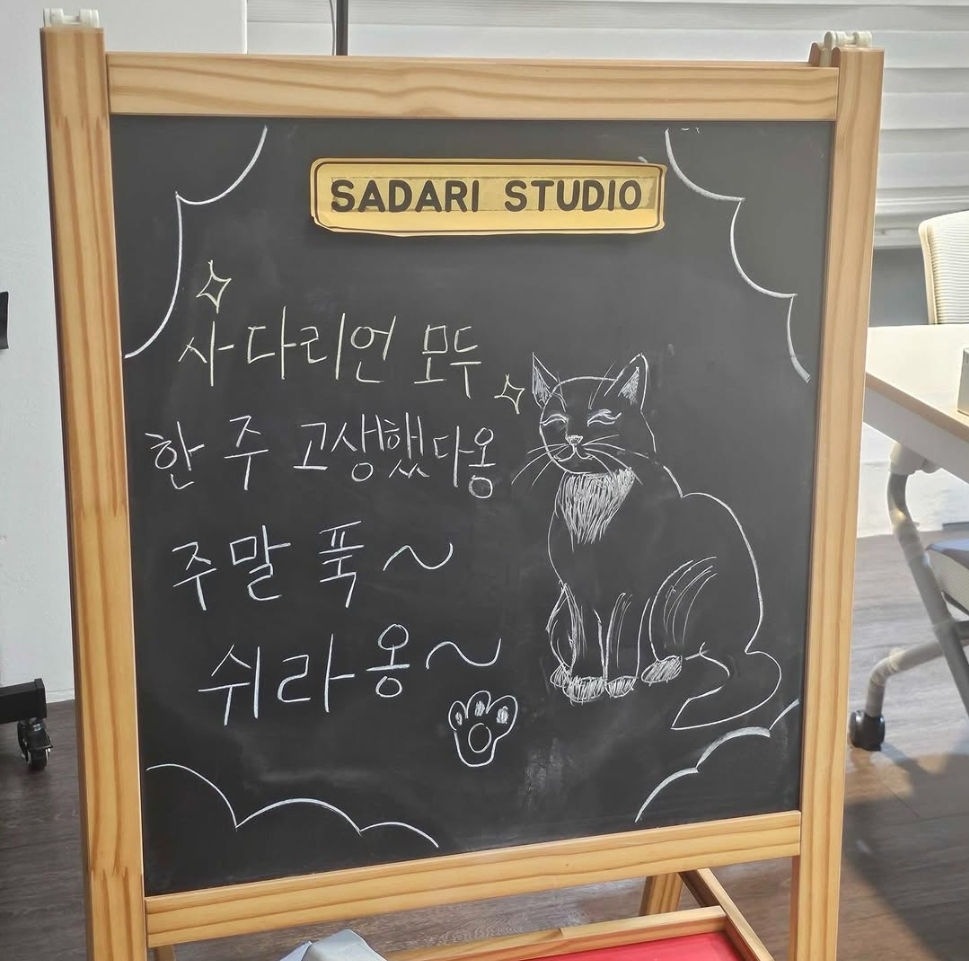 SADARI STUDIO
사다리언 모두
한 주 고생했다옹
주말 푹~
쉬라옹~